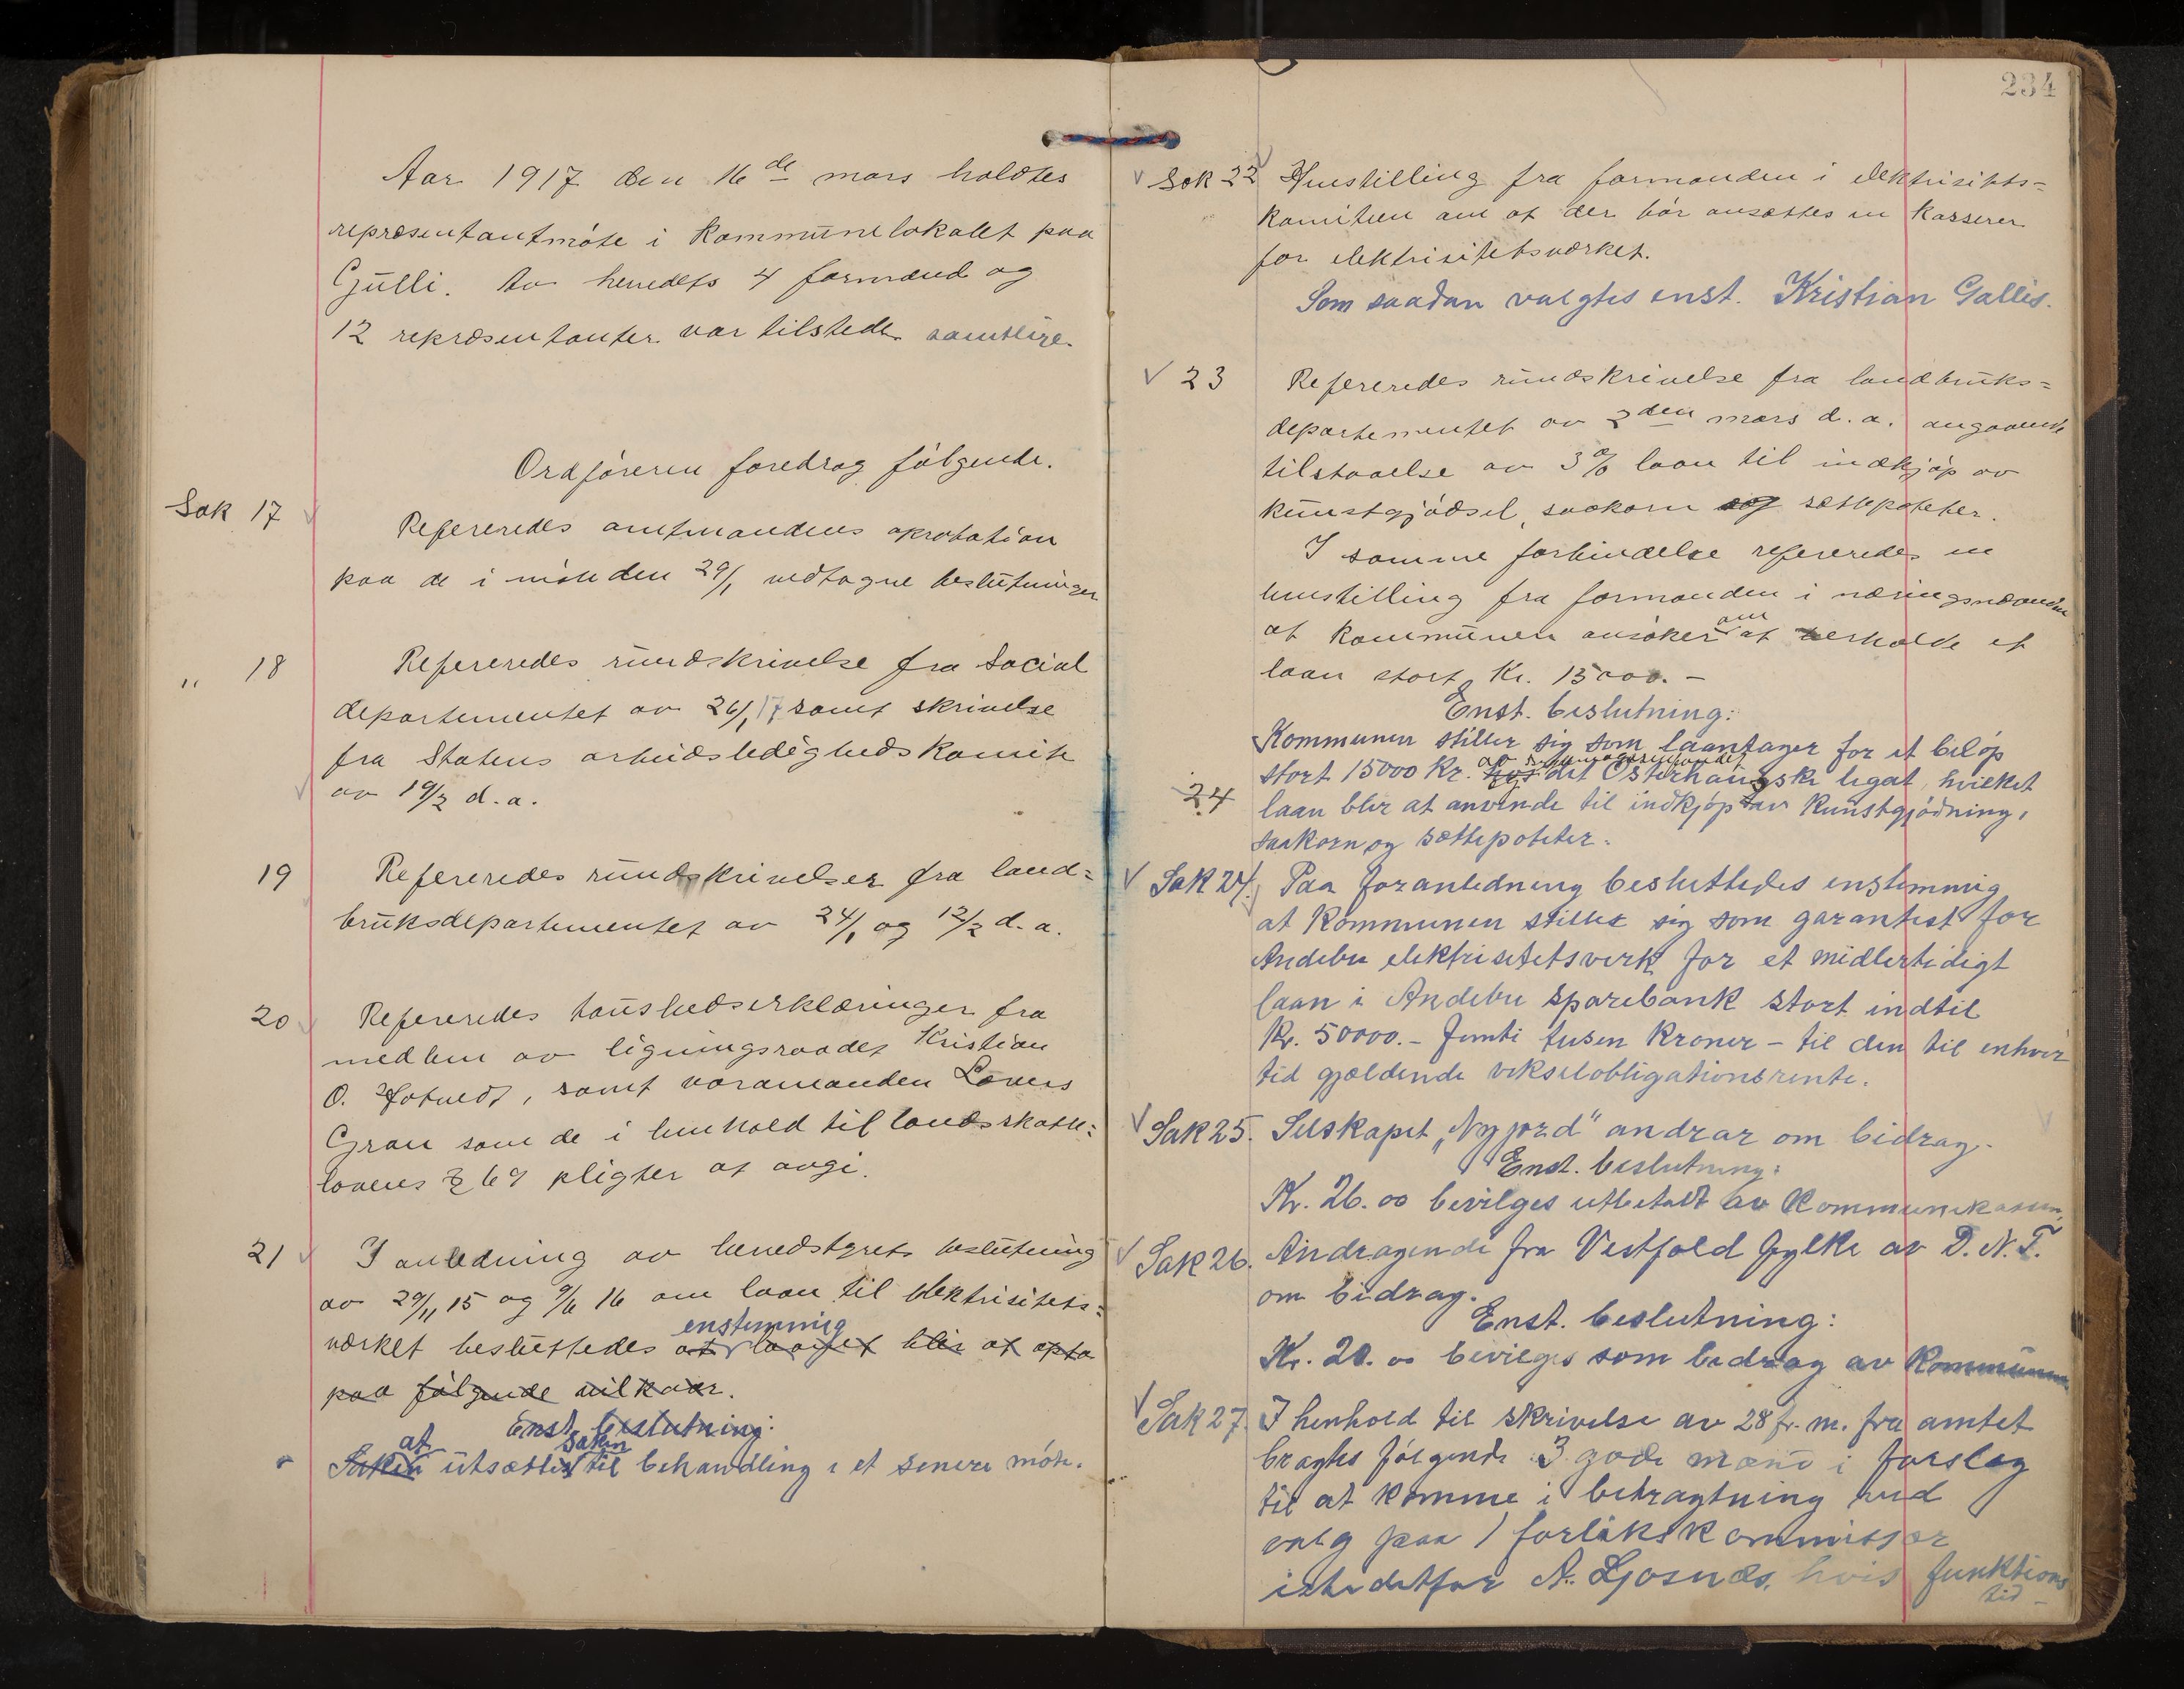 Aar 1917 den 16de mars holdtes
repræsentantmöte i Kommunelokalet paa
Gjulli. Av herredets 4 formænd og
12 repræsentanter var tilstede samtlige.
Ordföreren foredrog fölgende.
Sak 17
Refereredes amtmandens aprobation
paa de i möte den 29/1 vedtagne beslutninger
" 18
Refereredes rundskrivelse fra Social
departementet av 26/1 17 samt skrivelse
fra Statens arbeidsledigheds Komite
av 19/2 d.a.
19
Refereredes rundskrivelser fra land=
bruksdepartementet av 24/1 og 12/2 d.a.
20
Refereredes taushedserklæringer fra
medlem av ligningsraadet Kristian
O. Hotvedt, samt varamanden Lovens
Gran som de i henhold til landsskatte=
lovens § 69 pligter at avgi.
21
I anledning av herredstyrets beslutning
av 29/11 15 og 9/6 16 om laan til elektrisitets=
værket besluttedes at laanet blir at opta
enstemmig
paa følgende vilkaar.
Enst. beslutning:
at saken
Saken utsættes til behandling i et senere möte.
234
Sak 22 Henstilling fra formanden i elektrisitets=
Komiteen om at der bör ansættes en Kasserer
for elektrisitetsværket.
Som saadan valgtes enst. Kristian Gallis.
23
Refereredes rundskrivelse fra landbruks=
departementet av 2den mars d.a. angaaende
tilstaaelse av 3% laan til indkjöp av
Kunstgjödsel, saakorn og sættepoteter.
I samme forbindelse refereredes en
henstilling fra formanden i næringsnævnden
om
at Kommunen ansöker at erholde et
laan stort Kr. 15000.-
Enst. beslutning:
Kommunen stiller sig som laantager for et belöp
stort 15000 Kr. hos det Österhaugske legat, hvilket
24
laan blir at anvende til indkjöp av Kunstgjödning,
saakorn og sættepoteter.
Sak 24. Paa foranledning besluttedes enstemmig
at Kommunen stiller sig som garantist for
Andebu elektrisitetsverk for et midlertidigt
laan i Andebu Sparebank stort indtil
Kr. 50000.- femti tusen Kroner - til den til enhver
tid gjældende vekselobligationsrente.
Sak 25. Selskapet „Ny jord" andrar om bidrag.
Enst. beslutning:
Kr. 26.00 bevilges utbetalt av Kommunekassen.
Sak 26. Andragende fra Vestfold fylke av D.N.T.
om bidrag.
Enst. beslutning:
Kr. 20.00 bevilges som bidrag av Kommunen
Sak 27. I henhold til skrivelse av 28 f.m. fra amtet
bragtes fölgende 3 gode mænd i forslag
til at komme i betragtning ved
valg paa 1 forlikskommissær
istedetfor A. Gjosnæs, hvis funktions
tid -